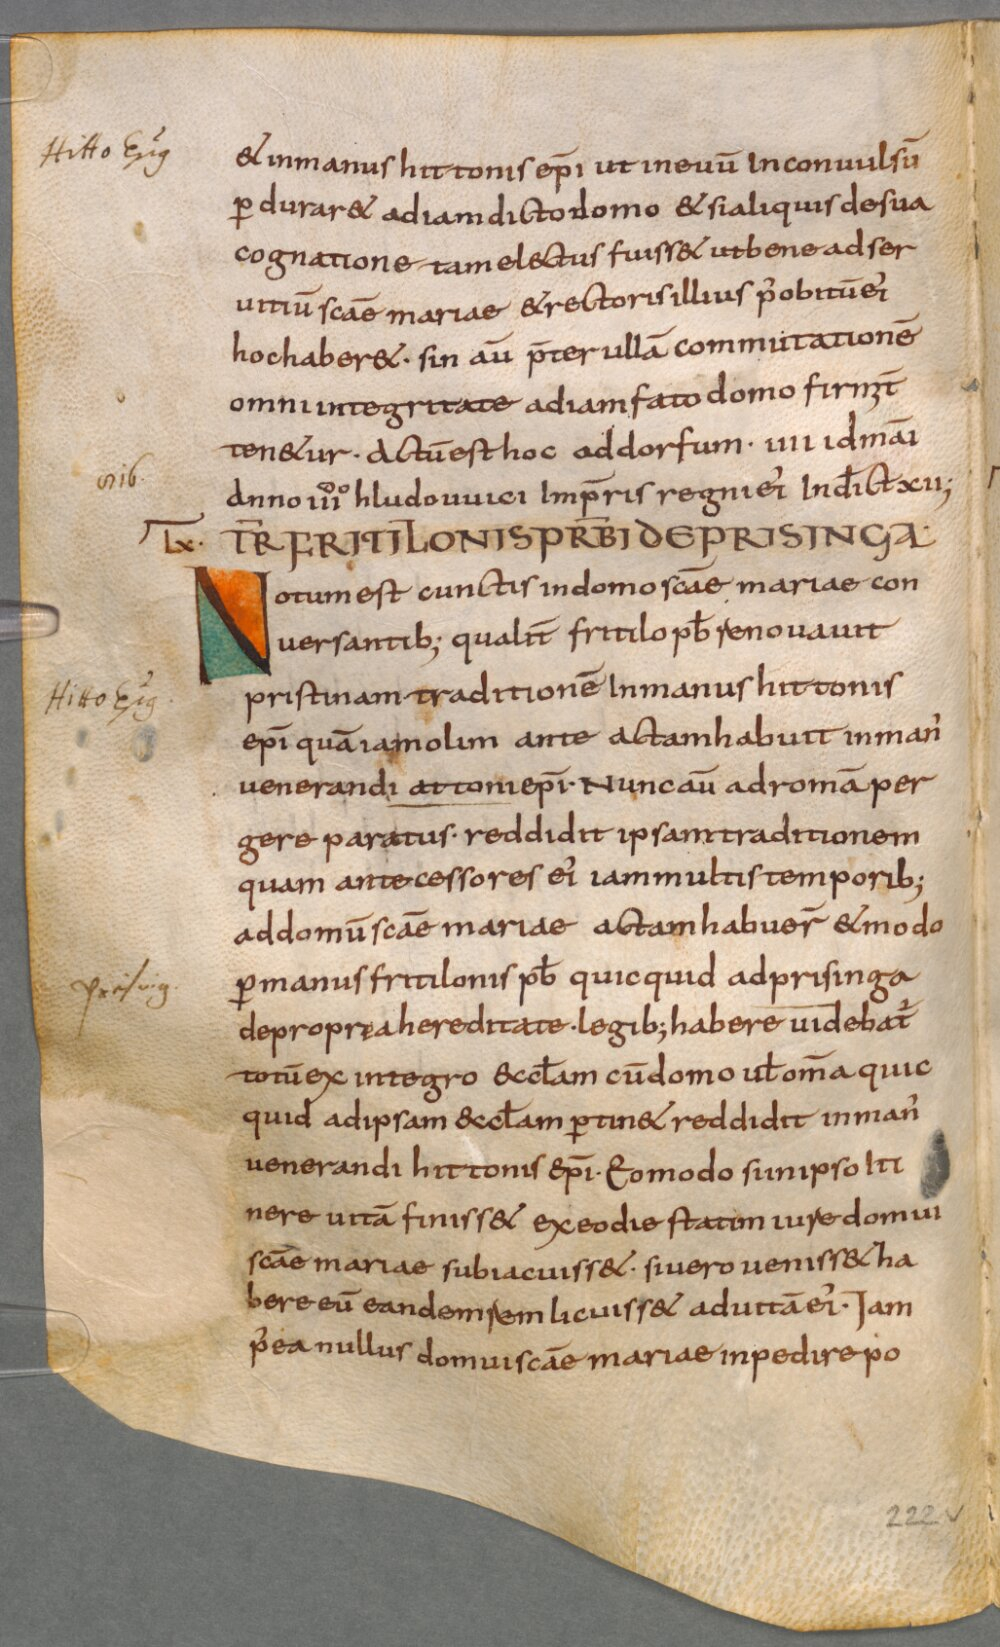 Hitto Ep̄g
& inmanus hittonis ep̄i ut ineuū Inconuulsū
ꝑ durar& adiamdicto domo & sialiquis desua
cognatione tam electus fuiss& utbene adser
uitiū scāe mariae & rectoris illius p̄ obitū ei᷒
hochaber&· sin aū p̄ter ullā commutationē
omni integritate adiamfato domo firmit̄
ten&ur· Actū est hoc addorfum· IIII id māi
Anno hludouuici Imp̄ris regni ei᷒ Indict̄ xii;
Lx. TR̄ FRITILONIS PRB̄I DE PRISINGA·
Notum est cunctis indomo scāe mariae con
uersantib; qualit̄ fritilo pb̄ renouauit
Hitto Ep̄g
pristinam traditionē Inmanus hittonis
ep̄i quā iamolim ante actam habuit inman᷒
uenerandi attoni ep̄i· Nunc aū adromā per
gere paratus· reddidit ipsam traditionem
quam antecessores ei᷒ iammultis temporib;
addomū scāe mariae actam habuer̄ & modo
ꝑ manus fritilonis pb̄ quicquid adprisinga
deproprea hereditate· legib; habere uidebat᷒
totū ex integro &ccl̄am cū domo ul̄ om̄a quic
quid adipsam &ccl̄am ꝑtin& reddidit inman᷒
uenerandi hittonis ep̄i· Eomodo siinipso Iti
nere uitā finiss& exeodie statim iure domui
scāe mariae subiacuiss&· siuero ueniss& ha
bere eū eandem rem licuiss& aduitā ei᷒· Iam
p̄ea nullus domui scāe mariae inpedire po
222v